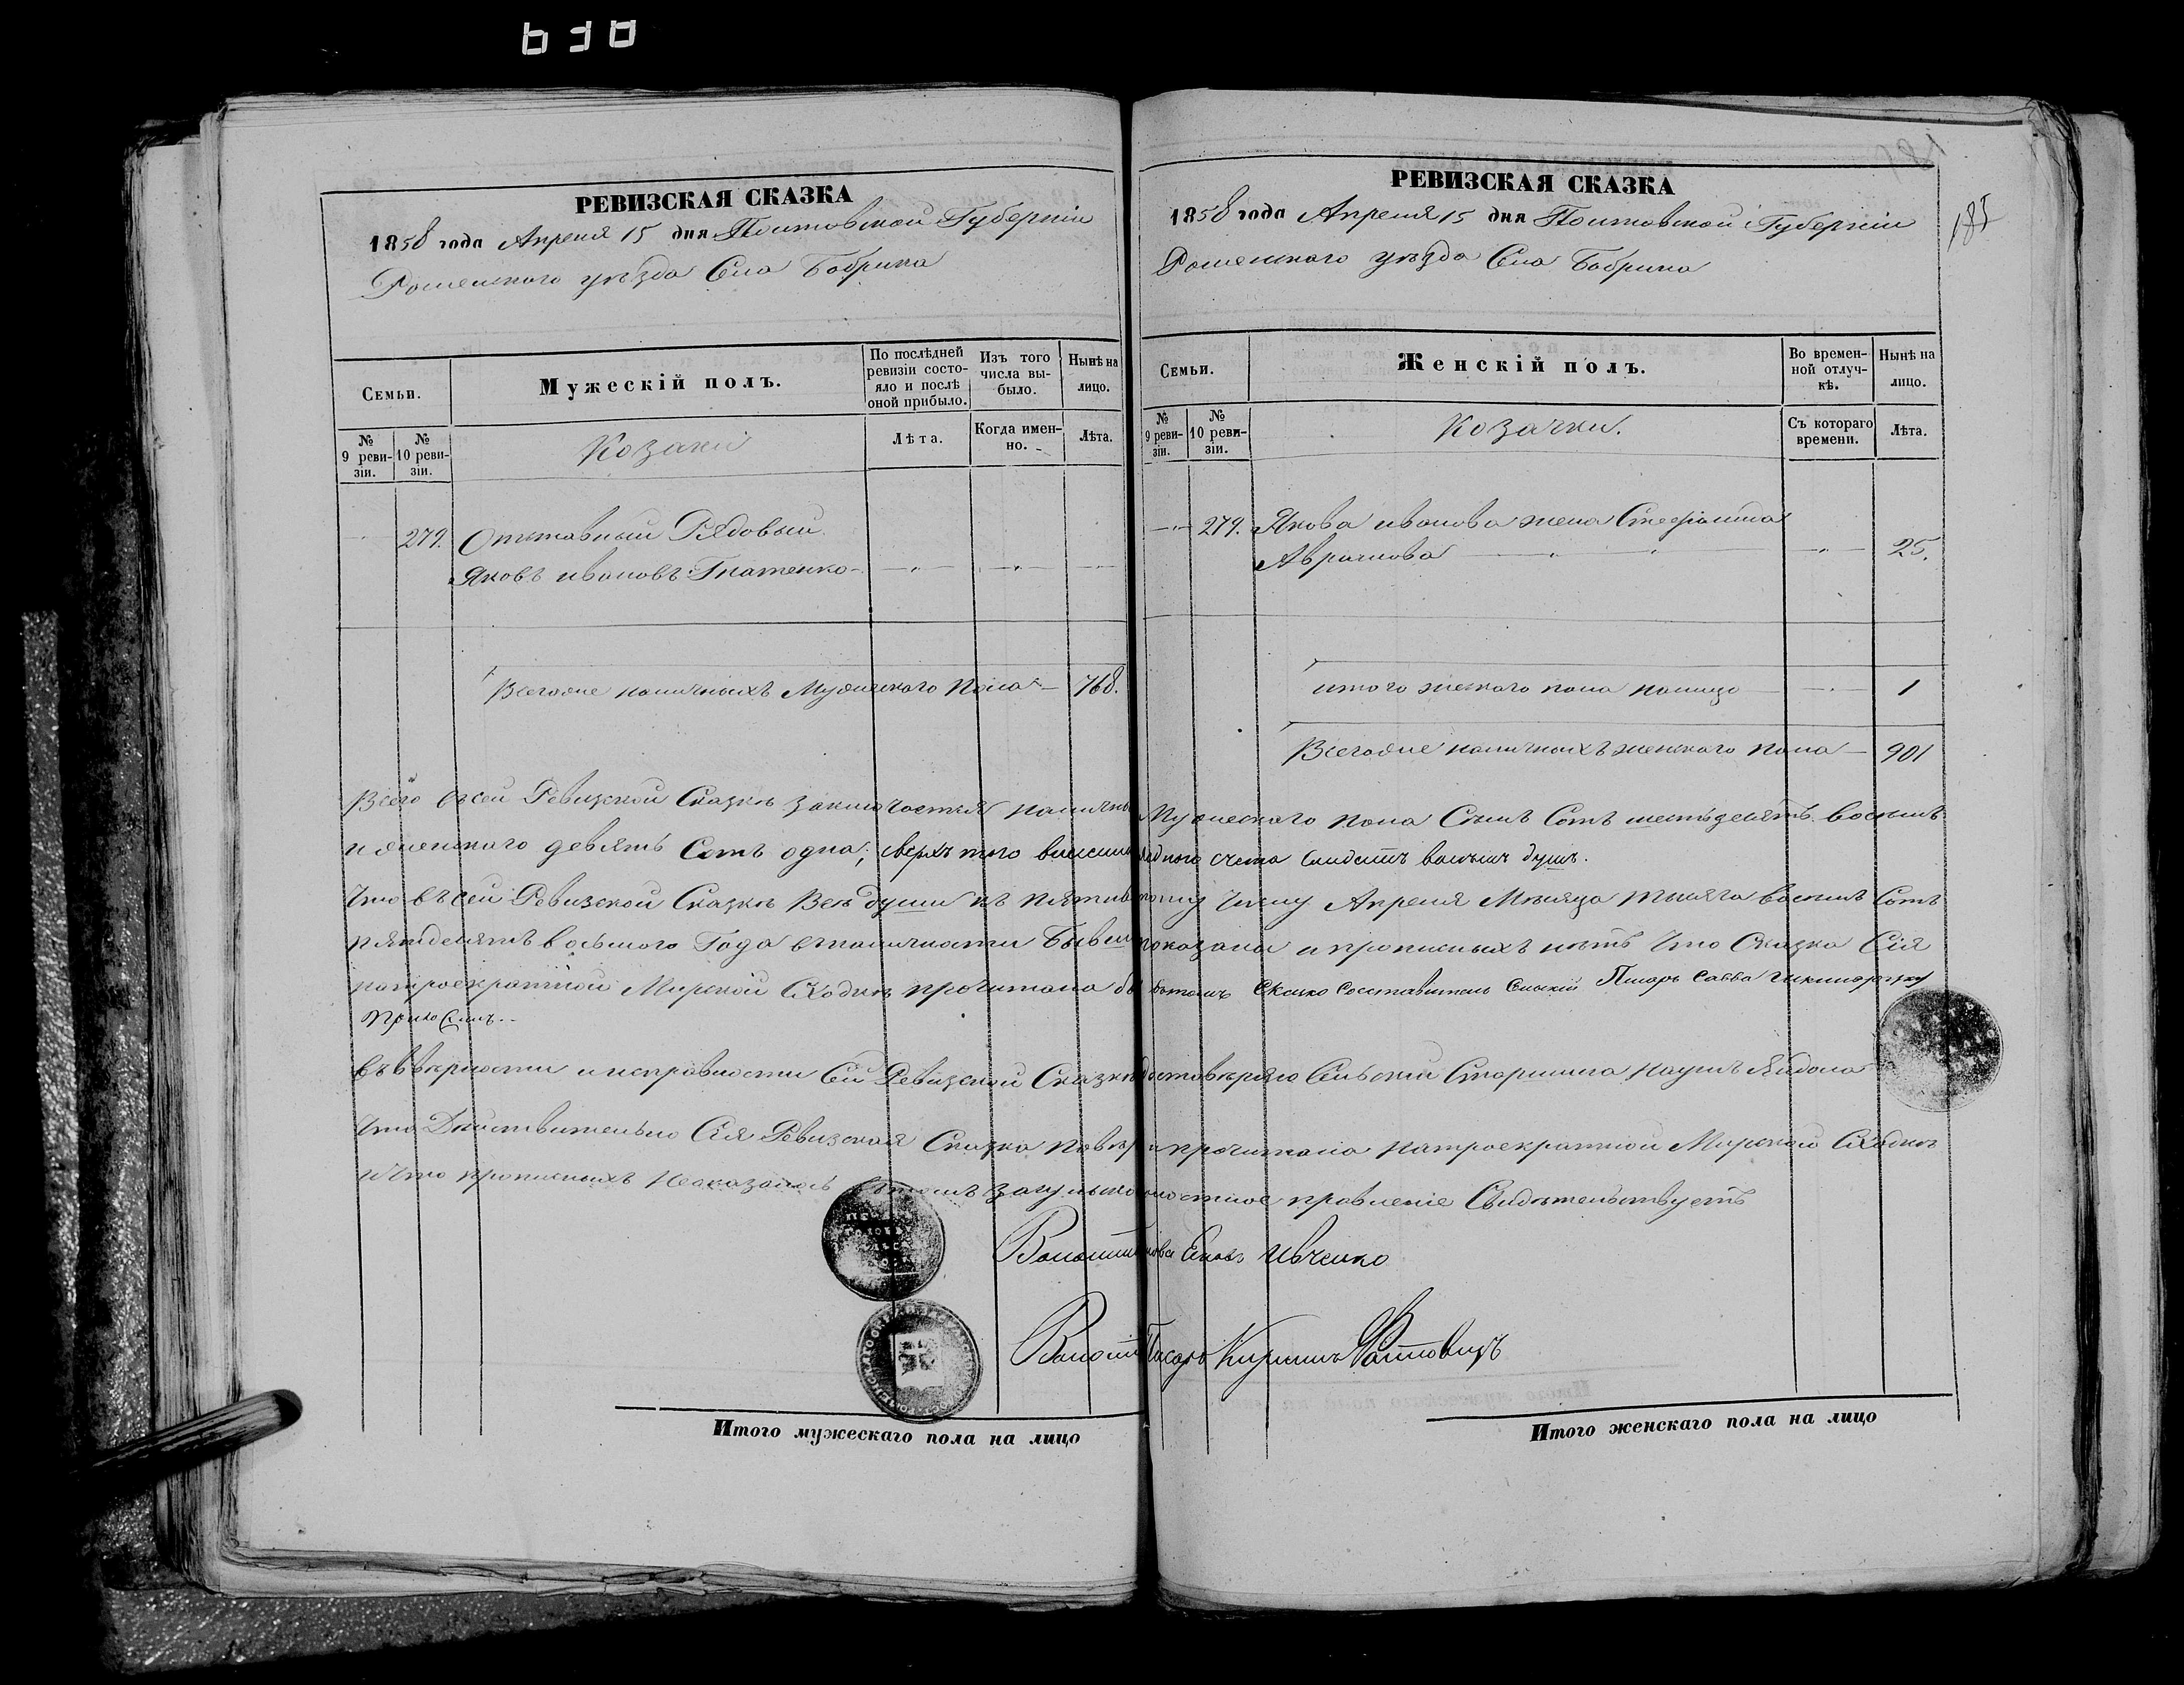 РЕВИЗСКАЯ СКАЗКА
1858 года Апреля 15 дня Полтовской Губернiи
Роменского уѣзда Села Бобрика
Семьи.
Мужескiй полъ.
По послѣдней ревизiи состояло и послѣ оной прибыло.
Изъ того числа выбыло.
Нынѣ на лицо.
№ 9 ревизiи.
№ 10 ревизiи.
Козаки
Лѣта.
Когда именно.
Лѣта.
279. Отставный Рядовый
Яковъ ивановъ Гнатенко
Всегоже наличныхъ Мужескаго пола 768.
РЕВИЗСКАЯ СКАЗКА
1858 года Апреля 15 дня Полтовской Губернiи
Роменского уѣзда Села Бобрика
185
Семьи.
Женскiй полъ.
Во временной отлучкѣ.
Нынѣ на лицо.
№ 9 ревизiи.
№ 10 ревизiи.
Козачки.
Съ котораго времени.
Лѣта.
279. Якова иванова жена Стефанида
Аврамова 25.
итого женского пола налицо 1
Всегоже наличныхъ женского пола 901
Всего въсей Ревизской Сказкѣ заключается наличны Мужеского пола Семь Сотъ шестьдесятъ восемь
и женского девять Сотъ одна; сверхъ того счета восемь душъ.
Что въсей Ревизской Сказкѣ Всѣ души къ пятнв числу Апреля Мѣсяца тысяча восемь Сотъ
пятдесятъ восьмого Года въналичности Бывш показаны и прописныхъ нѣтъ Что Сказка Сiя
натроекратной Мирской Сходкѣ прочитана бы вътомъ Сказко Составитель Сельскiй Писарь Савва
Въ вѣрности и исправности Сей Ревизской Сказки достовѣряю Сельский Старшина Наумъ
Что Дѣйствительно Сiя Ревизская Сказка повѣр и прочитана натроекратной Мирской Сходкѣ
и Что прописныхъ Неоказалось вътомъ правленiе Свидѣтельствуетъ
Ивченко
Писарь Кирилъ
Итого мужескаго пола на лицо
Итого женскаго пола на лицо